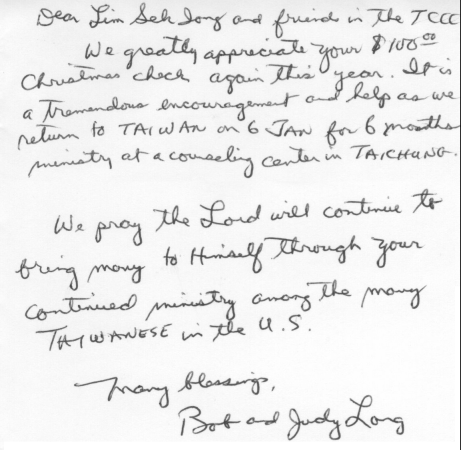 Dear Lim Sek Iong and friend in the TCCC
We greatly appreciate your $100.00
Christmas check again this year. It is
a tremendous encouragement and help as we
return to TAIWAN on 6 JAN for 6 months
ministry at a counseling center in TAICHUNG.
We pray the Lord will continue to
bring many to Himself through your
continued ministry among the many
TAIWANESE in the U.S.
Many blessings,
Bob and Judy Long